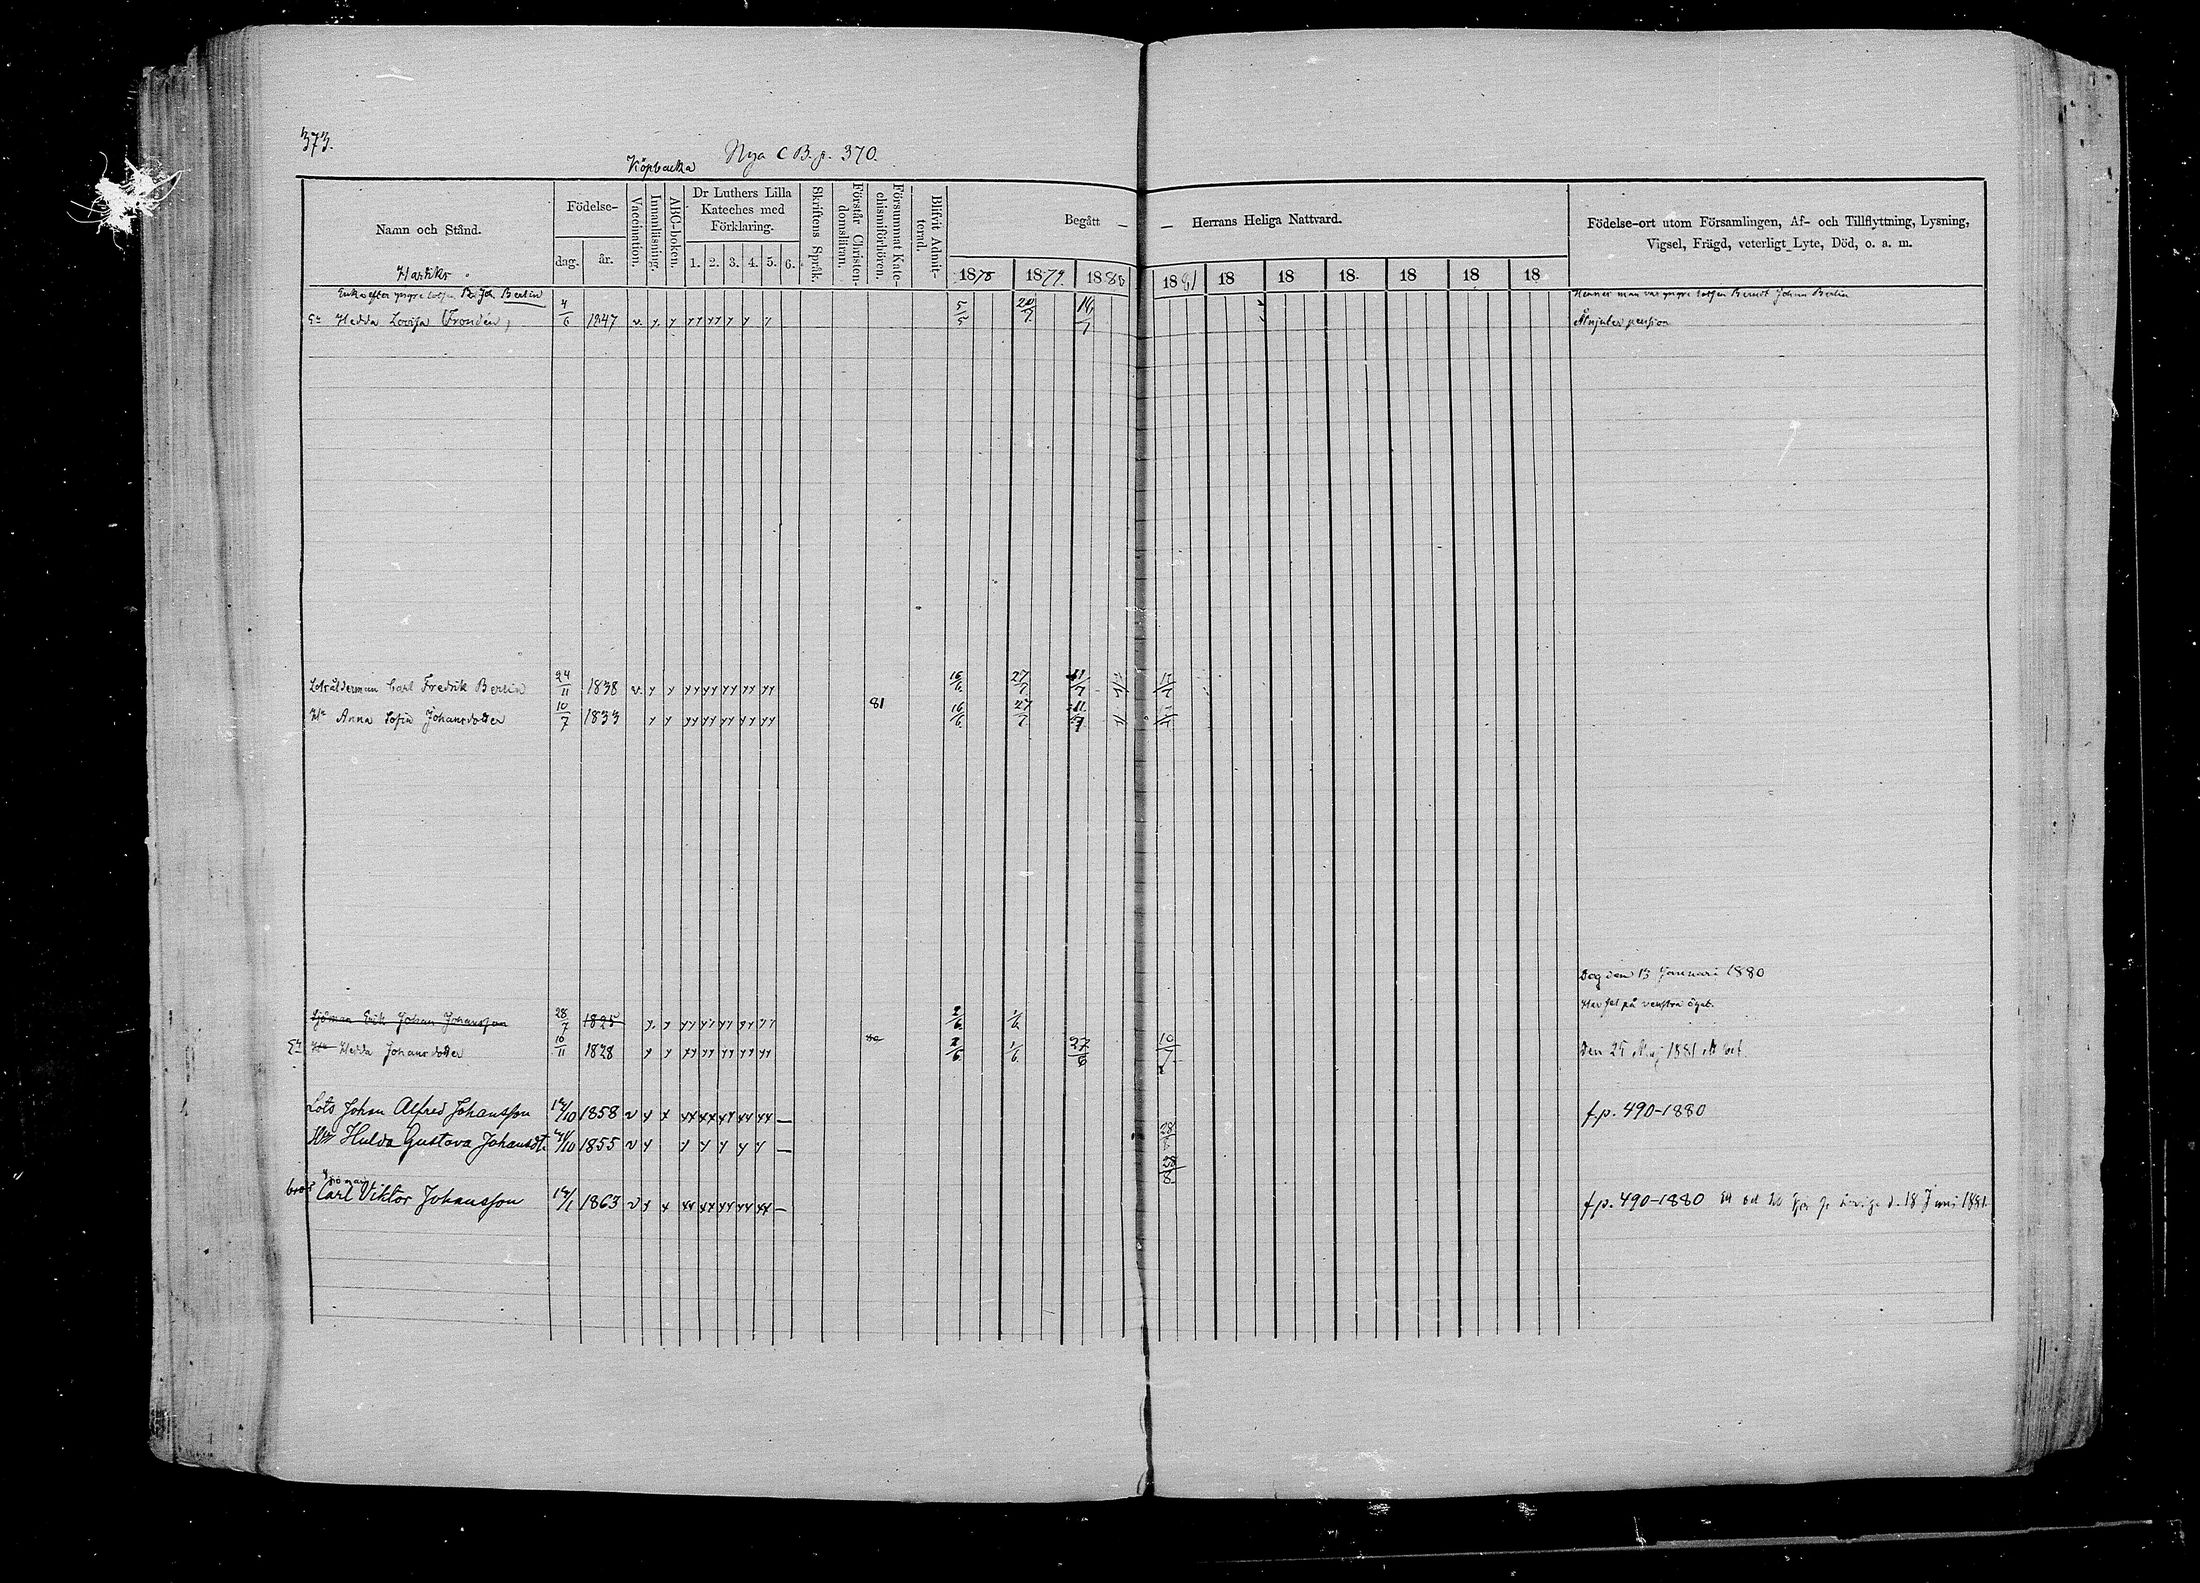 373.
Köpbacka Nya C B. p. 370.
Namn och Stånd. Födelse- dag. år. Vaccination. Innanläsning. ABC-boken. Dr Luthers Lilla Kateches med Förklaring. 1. 2. 3. 4. 5. 6. Skriftens Språk. Förstår Christendomslär:n. Försummat Katechismiförhören. Blifvit Admitterad. Begått — — Herrans Heliga Nattvard. Födelse-ort utom Församlingen, Af- och Tillflyttning, Lysning, Vigsel, Frägd, veterligt Lyte, Död, o. a. m.
1878 1879. 1880 1881 18 18 18 18 18 18
Enka efter yngre lotsen B. Joh. Berlin Hennes man var yngre lotsen Berndt Johan Berlin
En Hedda Lovisa Frondén, 4/6 1847 v. y. y yy yy y y y 5/5 20/7 18/7 Åtnjuter pension
Lotsålderman Carl Fredrik Berlin 24/11 1838 v. y y yy yy yy yy yy 16/6 27/7 11/7
Hu Anna Sofia Johansdotter 10/7 1833 y y yy yy yy yy yy 81 16/6 27/7 11/7
Dog den 13 Januari 1880
Har fel på venstra ögat.
Sjöman Erik Johan Johansson 28/7 1825 y. y yy yy yy yy yy 2/6 1/6
En Hu Hedda Johansdotter 10/11 1828 y y yy yy yy yy yy 2/6 1/6 27/6 10/7 Den 25 Maj 1881
Lots Johan Alfred Johansson 14/10 1858 v y y yy yy yy yy yy — f.p. 490-1880
Hu Hulda Gustava Johansdt. 1855 v y y y y y y — 28/8
28/8
bror Sjöman Carl Viktor Johansson 14/1 1863 v y y yy yy yy yy yy — f.p. 490-1880 d. 18 Juni 1881.